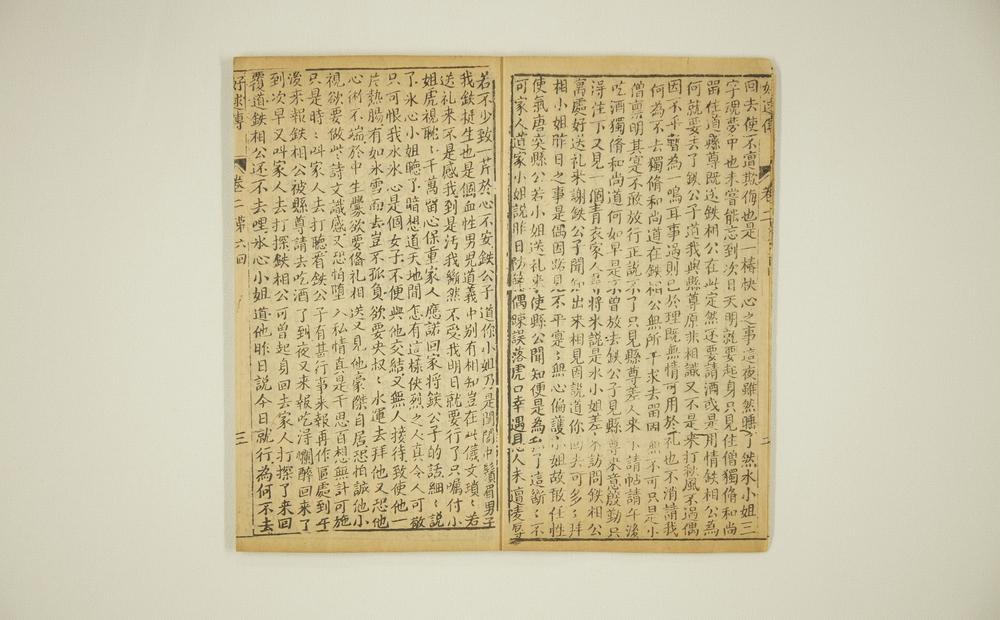 回去使不擅欺侮也是一樁快心之事這夜雖然睡了然水小姐三
字魂夢中也未嘗能忘到次日天明就要起身只見住僧獨脩和尚
留住道縣尊既送鉄相公在此定然还要請酒或是用情鉄相公為
何就要去了鉄公子道我與縣尊原非相識又不是來打秋風不過偶
因不平暫為一鳴耳事過則已於理既無情可用於礼也不消請我
何為不去獨脩和尚道在鉄相公無所干求去留因無不可只是小
僧禀明其寔不敢放行正説不了只見縣尊差人來下請帖請午後
吃酒獨脩和尚道何如早是不曾放去鉄公子見縣尊來意殷勤只
淂住下又見一個青衣家人尋將來説是水小姐差來訪問鉄相公
寓處好送礼來謝鉄公子聞知出来相見因説道你回去可多ミ拜
相小姐昨日之事是偶因路見不平寔ミ無心偏護小姐故敢任性
使氣唐突縣公若小姐送礼來使縣公聞知便是為私了這斷ミ不
可家人道家小姐説昨日防偶踈誤落虎口幸遇恩人未遭凌辱
若不少致一芹於心不安鉄公子道你小姐乃是閨閤中鬚眉男子
我鉄挺生也是個血性男児道義中别有相知豈在此儀文瑣ミ若
送礼来不是感我到是汚我然不受我明日就要行了只嘱付小
姐虎視眈ミ千萬留心保重家人應諾回家将鉄公子的話細ミ説
了氷心小姐聴了暗想道天地間怎有這様俠烈之人真令人可敬
只可恨我水氷心是個女子不便與他交結又無人接待致使他一
片熱腸有如氷雪而去豈不孤負欲要央叔ミ水運去拜他又恐他
心術不端於中生釁欲要俻礼相送又見他豪傑自居恐怕誠他小
視欲要做些詩文識感又恐怕墮入私情真是千思百想無計可施
只是時ミ叫家人去打聴看鉄公子有甚行事来報再作區處到午
後来報鉄相公被縣尊請去吃酒了到夜又来報吃淂爛醉回来了
到次早又叫家人去打探鉄相公可曾起身回去家人打探了来回
覆道鉄相公还不去哩氷心小姐道他昨日説今日就行為何不去
好逑傳 卷二 第六回 三